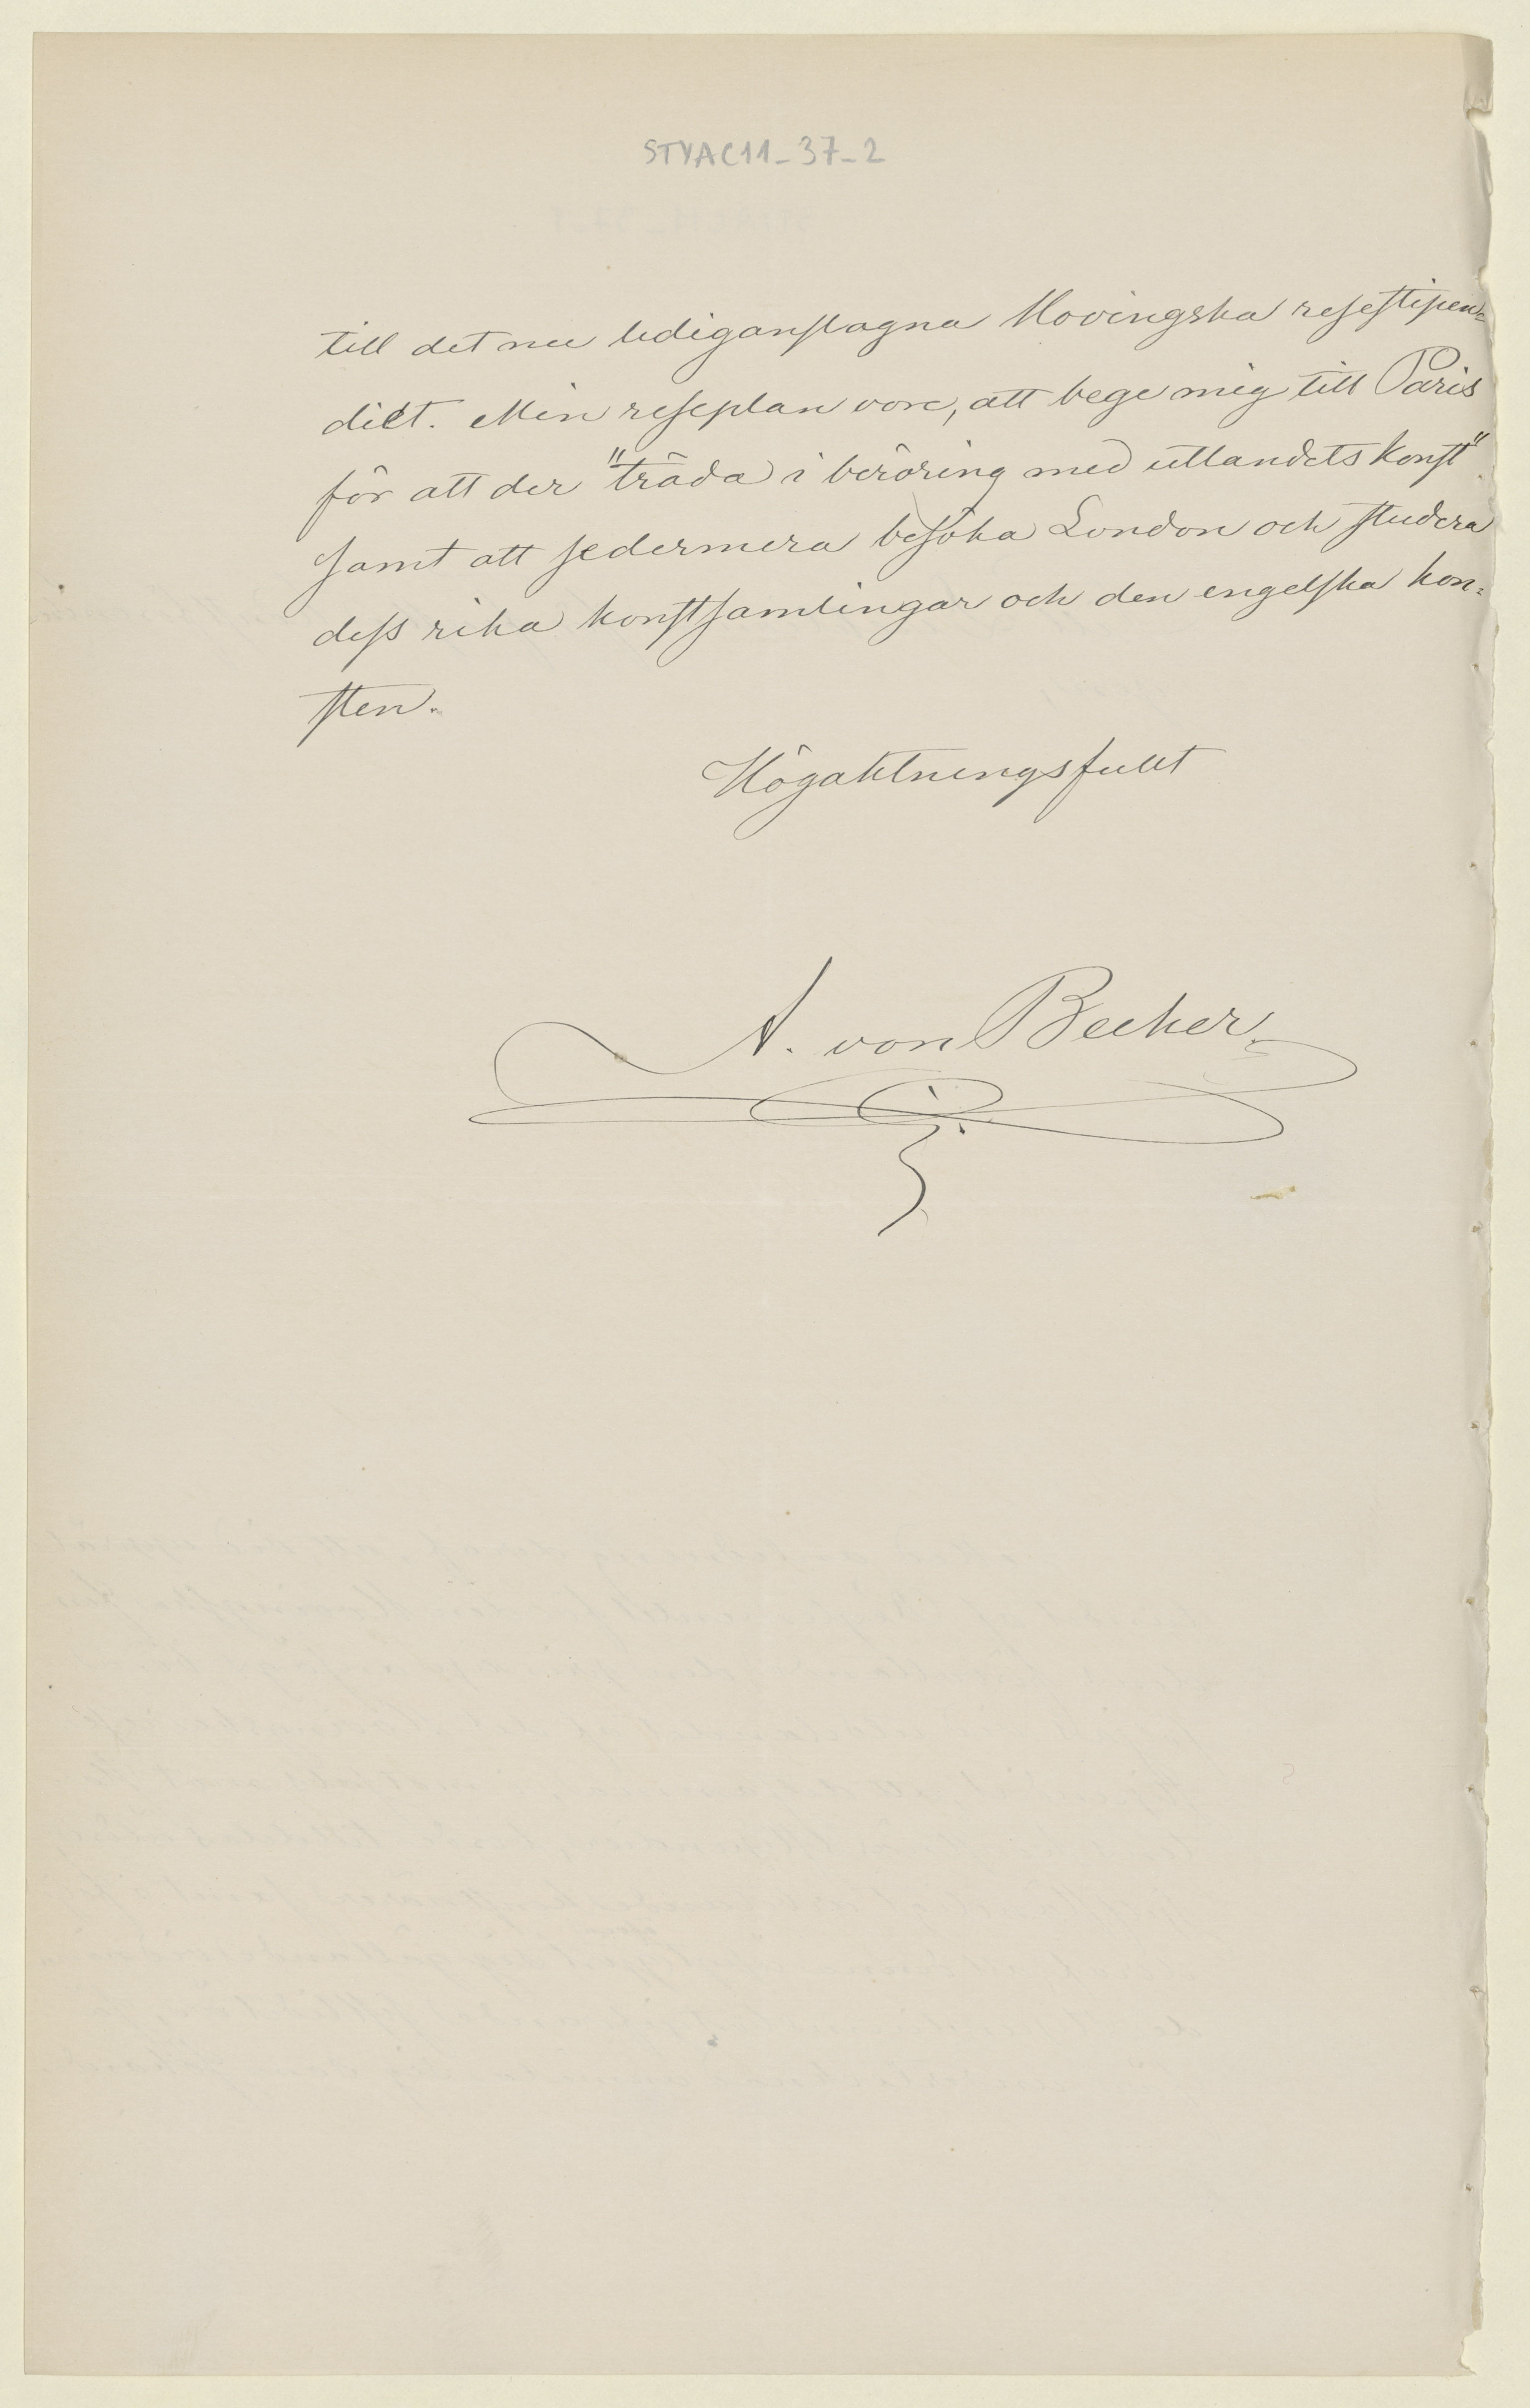 STYAC11_37_2
till det nu lediganslagna Hovingska resestipen=
diet. Min reseplan vore, att bege mig till Paris
för att der "träda i beröring med utlandets konst"
samt att sedermera besöka London och studera
dess rika konstsamlingar och den engelska kon=
sten.
Högaktningsfullt
A. von Becker.